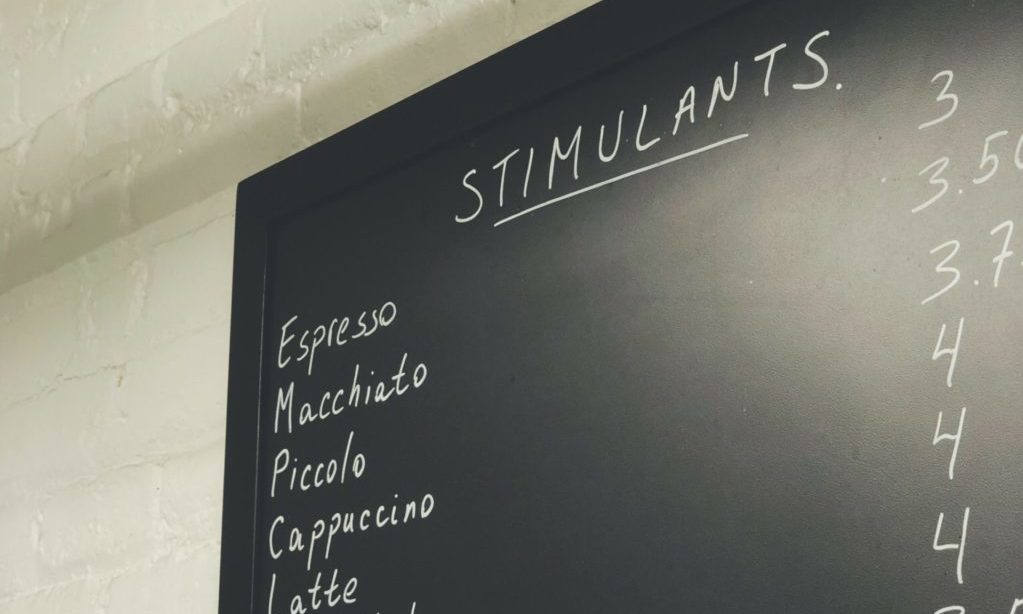 STIMULANTS.
Espresso 3
Macchiato 3.50
Piccolo 3.7
Cappuccino 4
Latte 4
4